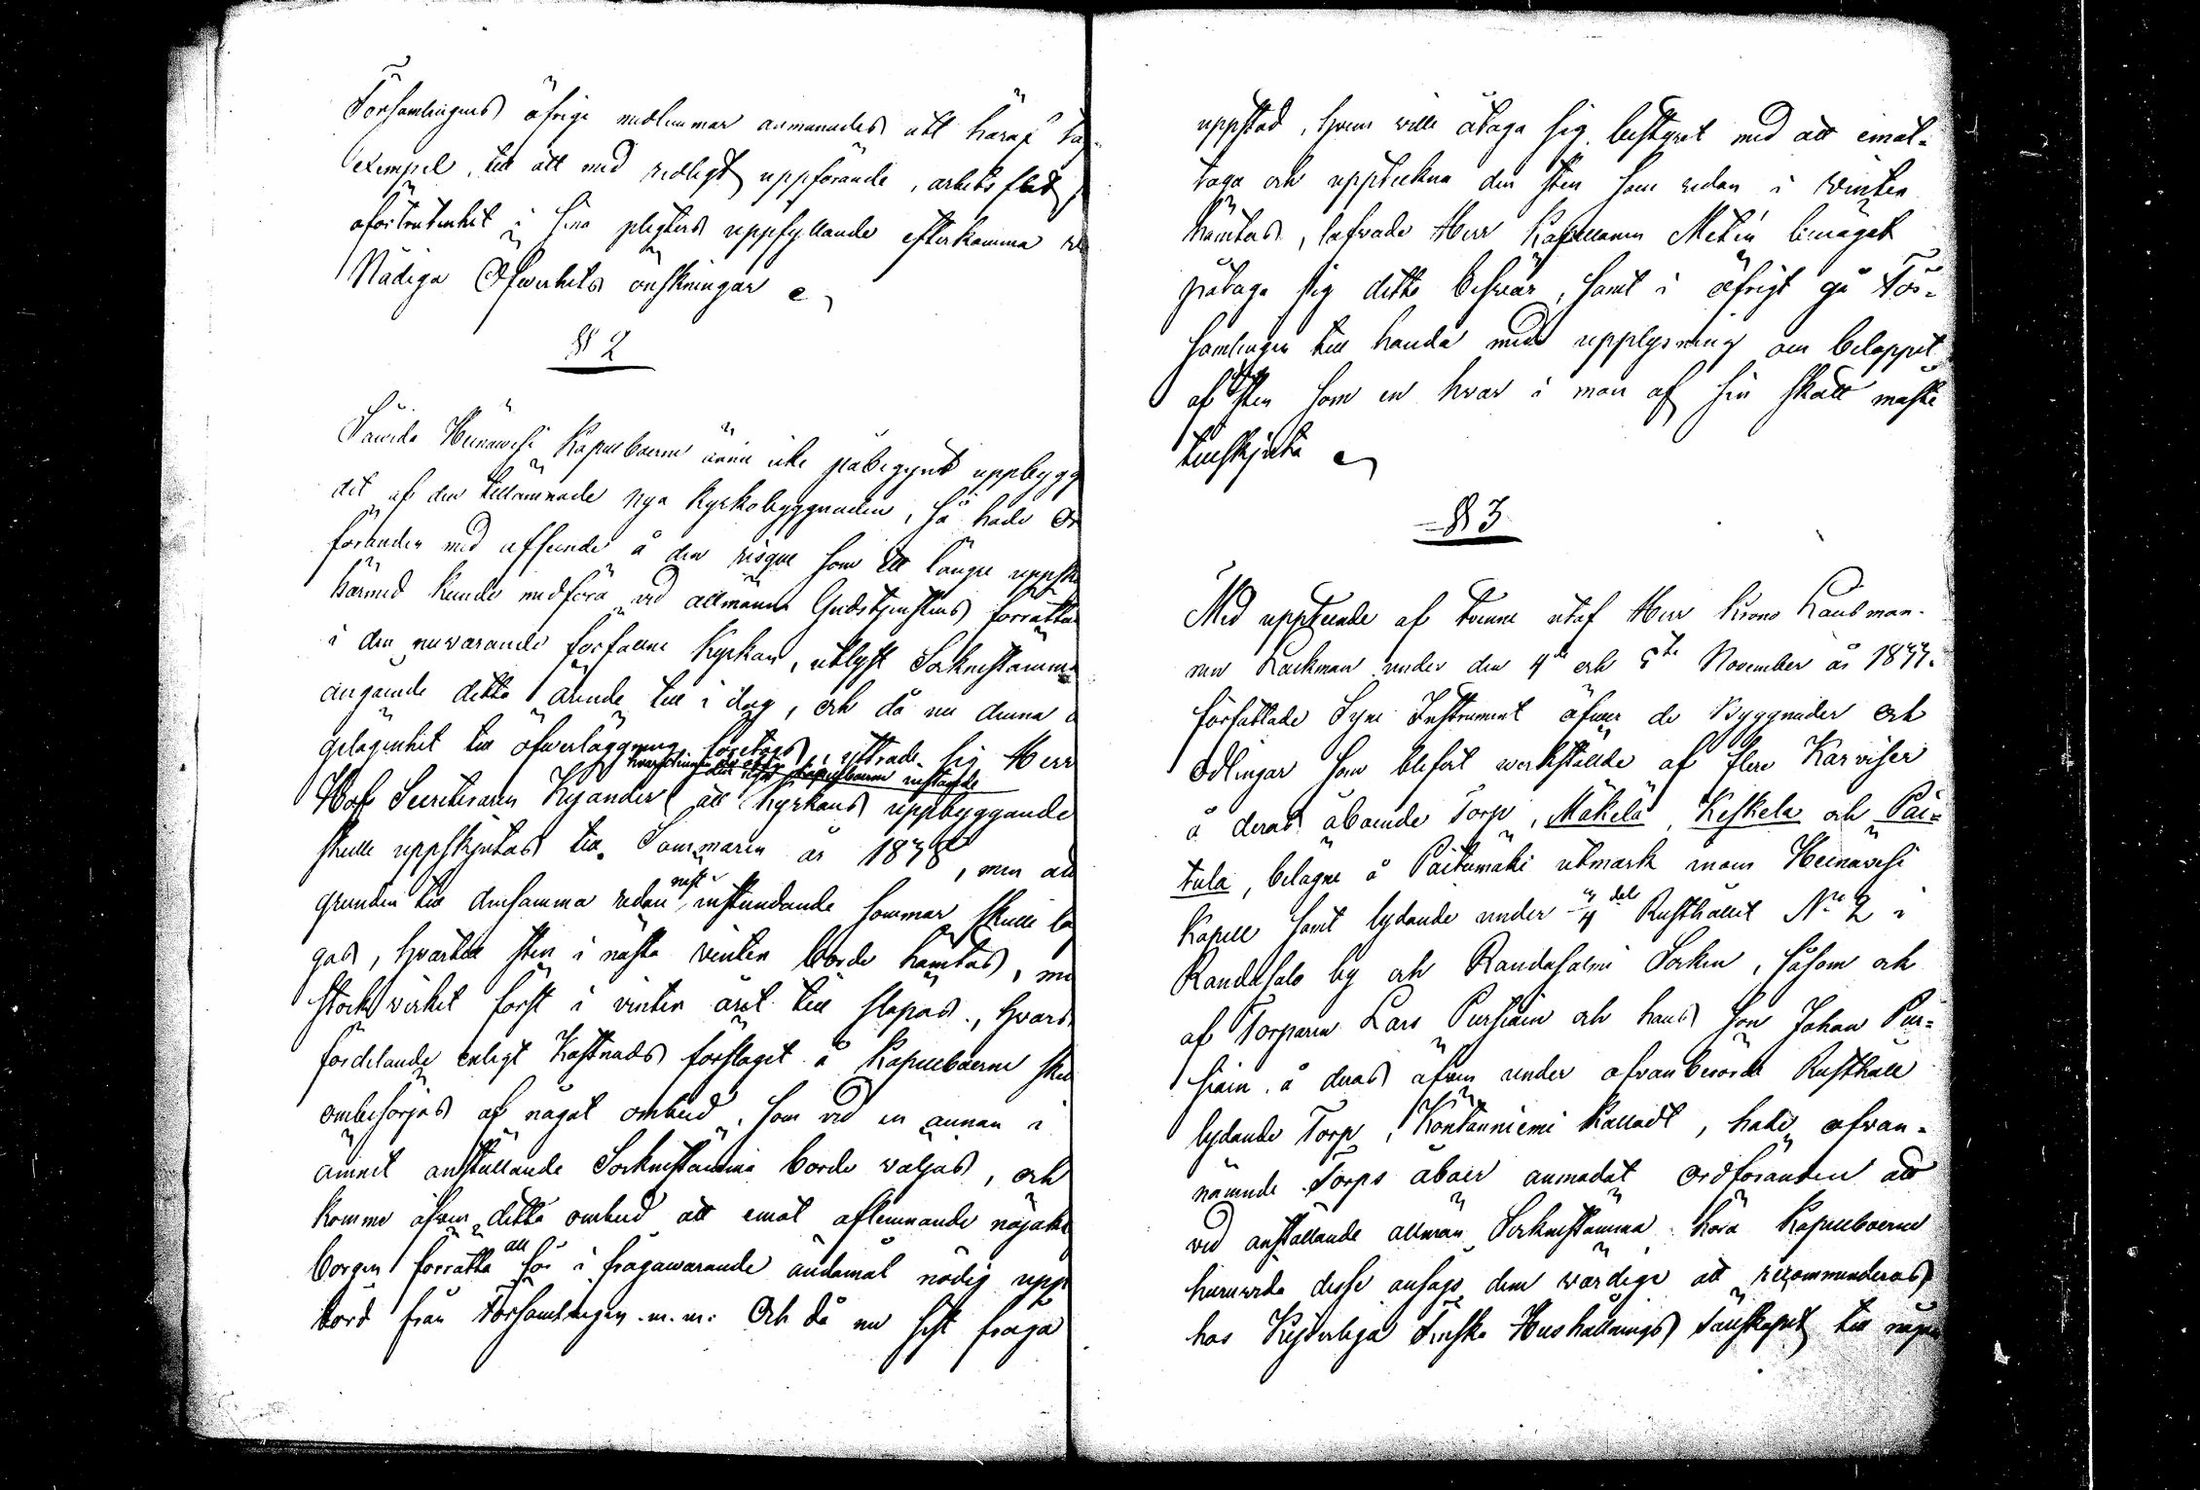 Församlingens öfrige medlemmar anmanades att häraf ta-
exempel, till att med redligt uppförande, arbets flit,
oförtrutenhet i sina pligters uppfyllande efterkomma
Nådiga Öfwerhets önskningar
§ 2
Sawida Heinäwesi Kapellboerne ännu icke påbegynt uppbygg
det af den tillämnade nya Kyrkobyggnaden, så hade Or
föranden med afseende å den risque som ett längre uppsk
härmed kunde medföra wid allmänna Gudstjenstens förrätta
i den nuwarande förfallne Kyrkan, utlyst Sockenstämma
angående detta ärende till i dag, och då nu denna
gelägenhet till öfwerläggning företogs, yttrade sig Herr
Kapellboerne
Hof Secreteraren Kyander att Kyrkans uppbyggande
skulle uppskjutas till Sommaren år 1838, men att
näst
grunden till densamma redan instundande sommar skulle läg
gas, hwartill sten i nästa winter borde hämtas, men
stockwirket först i winter året till släpas, hwars
fördelande enligt Kostnads förslaget å Kapellboerne skul
ombesörjas af något ombud, som wid en annan i
ämnet anställande Sockenstämma borde wäljas, och
komme äfwen detta ombud att emot aflemnande nöjakt
all
borgen förrätta för i frågawarande ändamål nödig upp
börd från Församlingen m.m. Och då nu sist fråga
uppstod, hwem wille åtaga sig bestyret med att emot-
taga och uppteckna den sten som redan i winter
hämtas, lofwade Herr Kapellanen Metén benäget
påtaga sig detta beswär, samt i öfrigt gå För-
samlingen till handa med upplysning om beloppet
af sten som en hwar i mån af sin skatt måste
tillskjuta
§ 3
Med uppteende af twenne utaf Herr Krono Länsman-
nen Lackman under den 4de och 5te November år 1833
författade Syne Instrument öfwer de Byggnader och
Odlingar som blifwit werkstälde af flere Karwiser
å deras åboende Torp, Mäkelä, Keskela och Pai-
tula, belägne å Paitamäki utmark inom Heinäwesi
Kapell samt lydande under 1/4 del Rusthållet No 2 i
Randasalo by och Randasalmi Socken, såsom och
af Torparen Lars Pursiain och hans son Johan Pur-
siain å deras äfwen under ofwanberörde Rusthåll
lydande Torp, Kontanniemi kalladt, hade ofwan-
nämnde Torps åboer anmodat Ordföranden att
wid anställande allmän Sockenstämma höra Kapellboerne
huruwida desse ansågo dem wärdige att recommenderas
hos Kejserliga Finska Hushållnings Sällskapet till någon